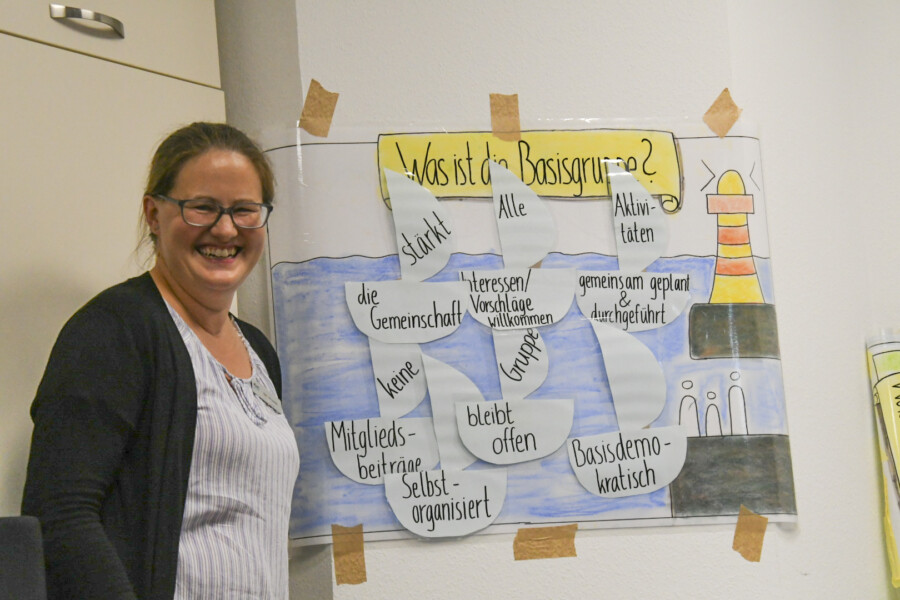 Was ist die Basisgruppe?
stärkt
die
Gemeinschaft
Alle
Interessen/
Vorschläge
willkommen
Aktivi-
täten
gemeinsam geplant
&
durchgeführt
keine
Mitglieds-
beiträge
Gruppe
bleibt
offen
Selbst-
organisiert
Basisdemo-
kratisch